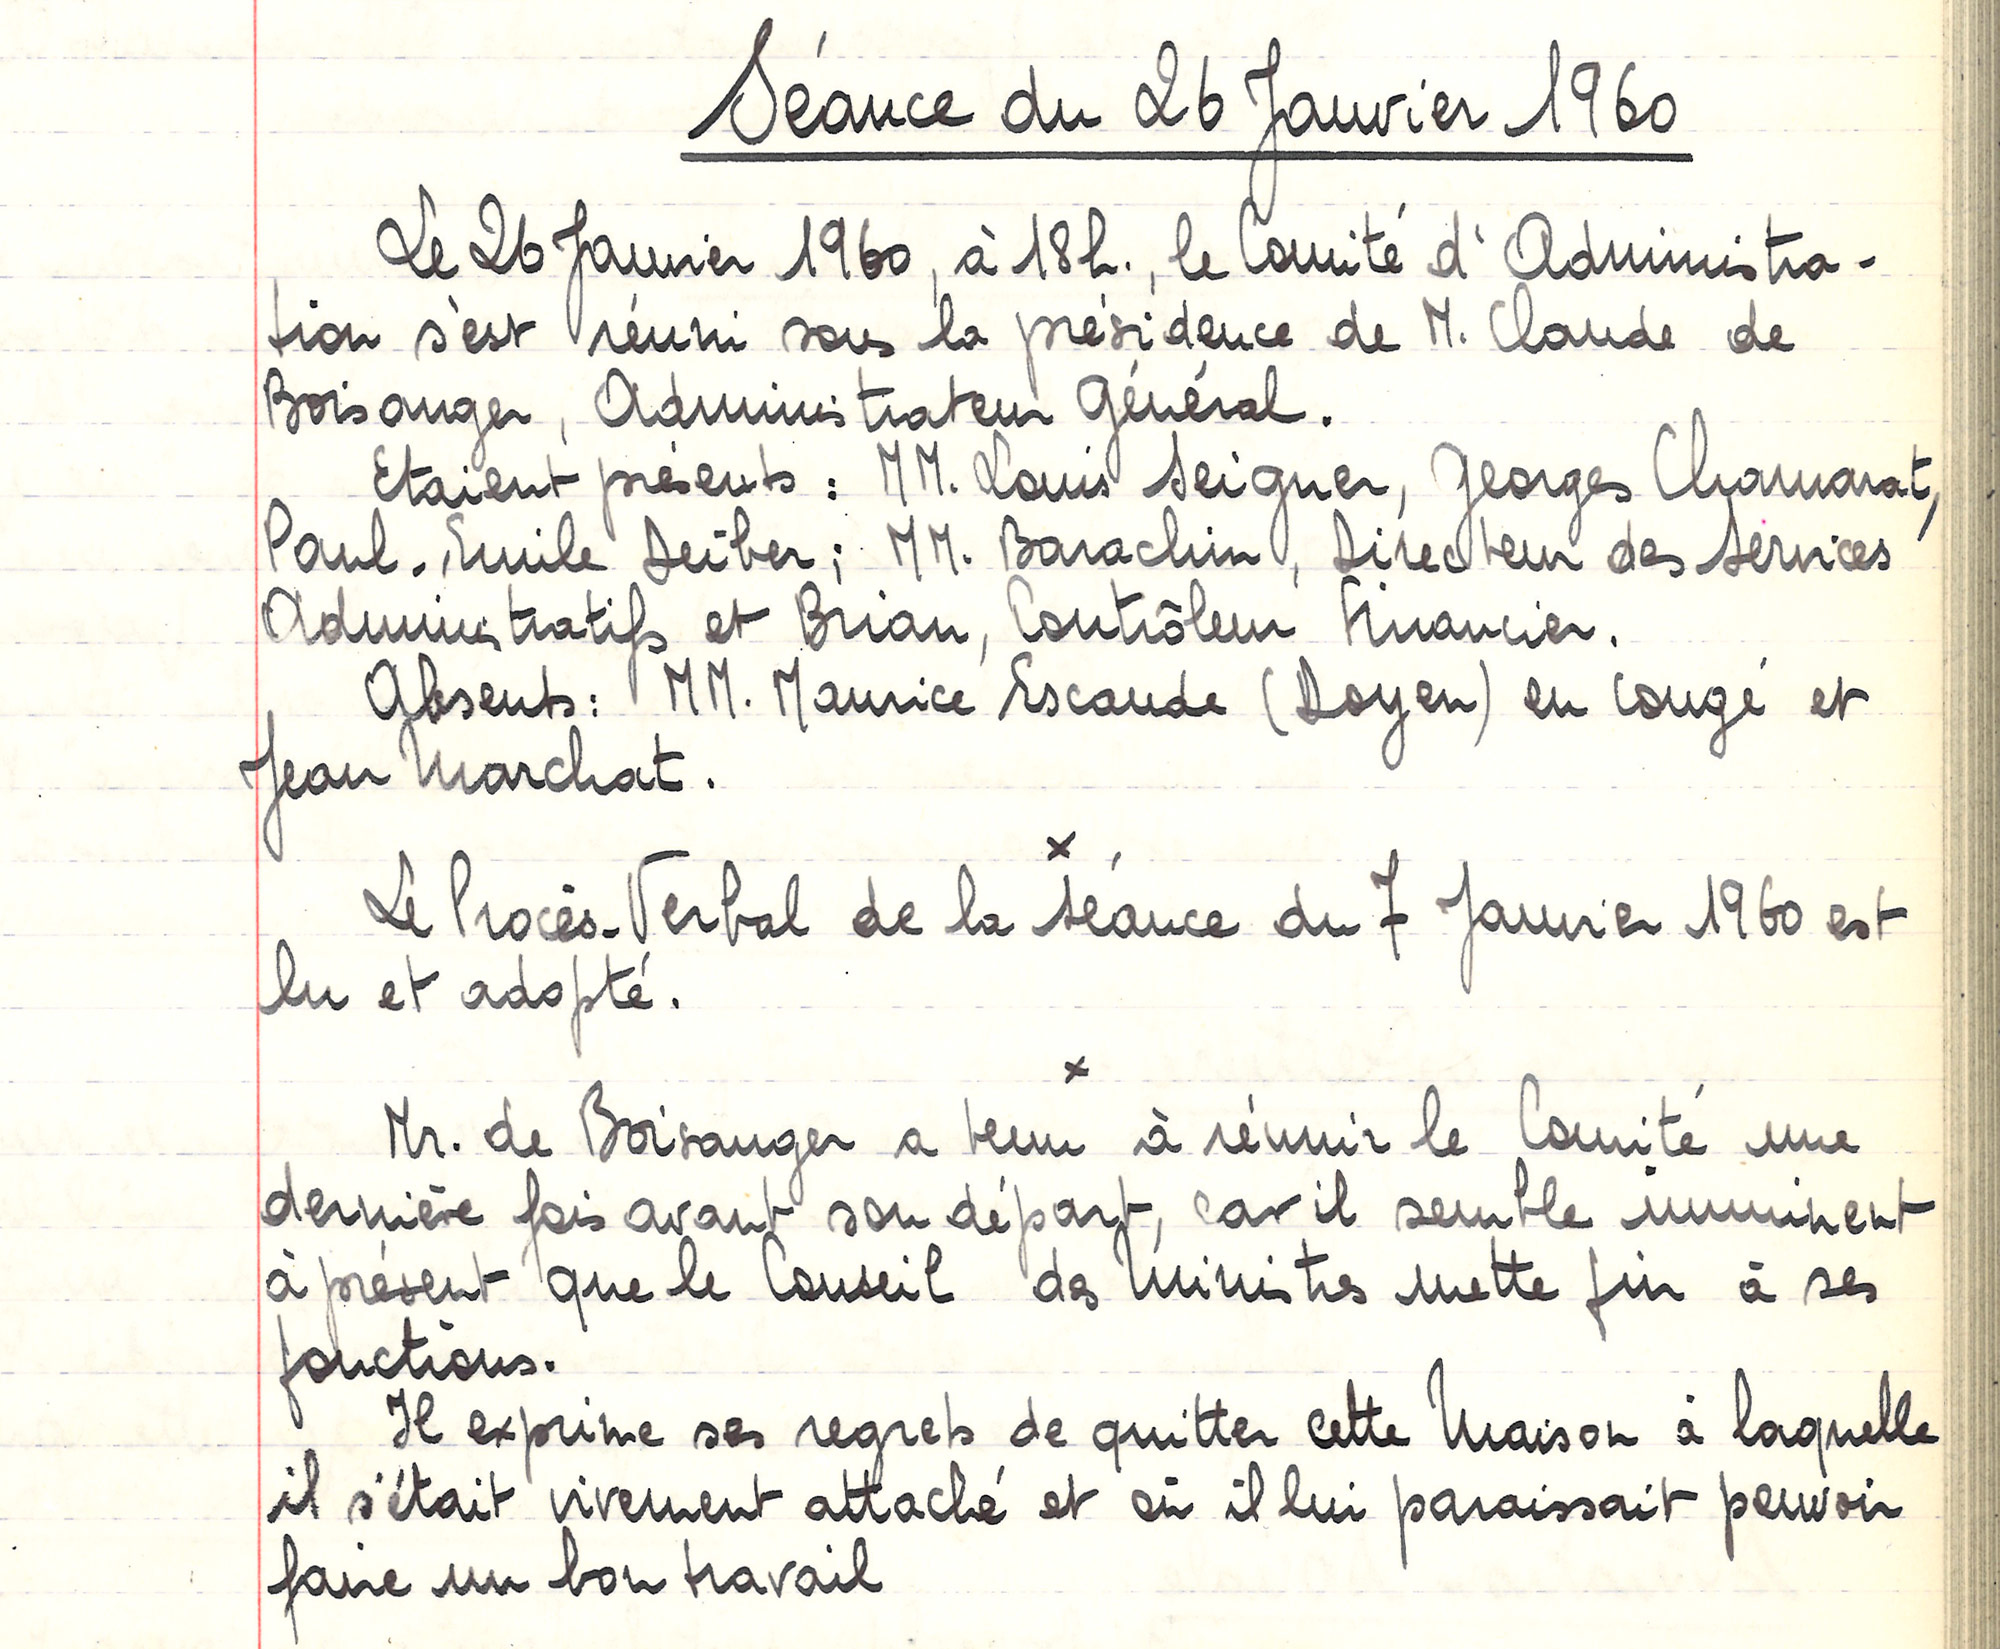 Séance du 26 Janvier 1960
Le 26 Janvier 1960, à 18h., le Comité d'Administra-
tion s'est réuni sous la présidence de M. Claude de
Boisanger, Administrateur Général.
Etaient présents : MM. Louis Seigner, Georges Chamarat,
Paul-Emile Deiber ; MM. Barachin, Directeur des Services
Administratifs et Brian, Contrôleur Financier.
Absents : MM. Maurice Escande (Doyen) en congé et
Jean Marchat.
x
Le Procès-Verbal de la Séance du 7 Janvier 1960 est
lu et adopté.
x
Mr. de Boisanger a tenu à réunir le Comité une
dernière fois avant son départ, car il semble imminent
à présent que le Conseil des Ministres mette fin à ses
fonctions.
Il exprime ses regrets de quitter cette Maison à laquelle
il s'était vivement attaché et où il lui paraissait pouvoir
faire un bon travail